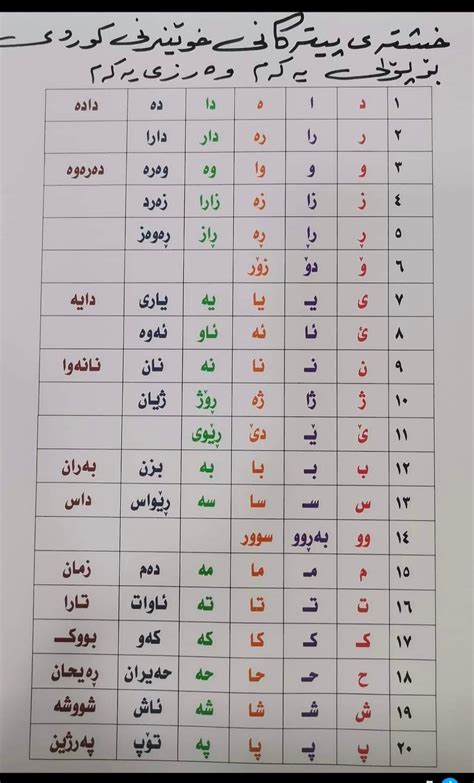 خشتەی پیتەکانی خوێندنی کوردی
بۆ پۆلی یەکەم وەرزی یەکەم
١ د ا ە دا دە دادە
٢ ر را رە دار دارا
٣ و و وا وە وەرە دەرەوە
٤ ز زا زە زارا زەرد
٥ ڕ ڕا ڕە ڕاز ڕەوەز
٦ ۆ دۆ زۆر
٧ ی یـ یا یە یاری دایە
٨ ئ ئا ئە ئاو ئەوە
٩ ن نـ نا نە نان نانەوا
١٠ ژ ژا ژە ڕۆژ ژیان
١١ ێ ێـ دێ ڕێوی
١٢ ب بـ با بە بزن بەران
١٣ س سـ سا سە ڕێواس داس
١٤ وو بەڕوو سوور
١٥ م مـ ما مە دەم زمان
١٦ ت تـ تا تە ئاوات تارا
١٧ کـ کـ کا کە کەو بووکـ
١٨ ح حـ حا حە حەیران ڕەیحان
١٩ ش شـ شا شە ئاش شووشە
٢٠ پ پـ پا پە تۆپ پەرژین